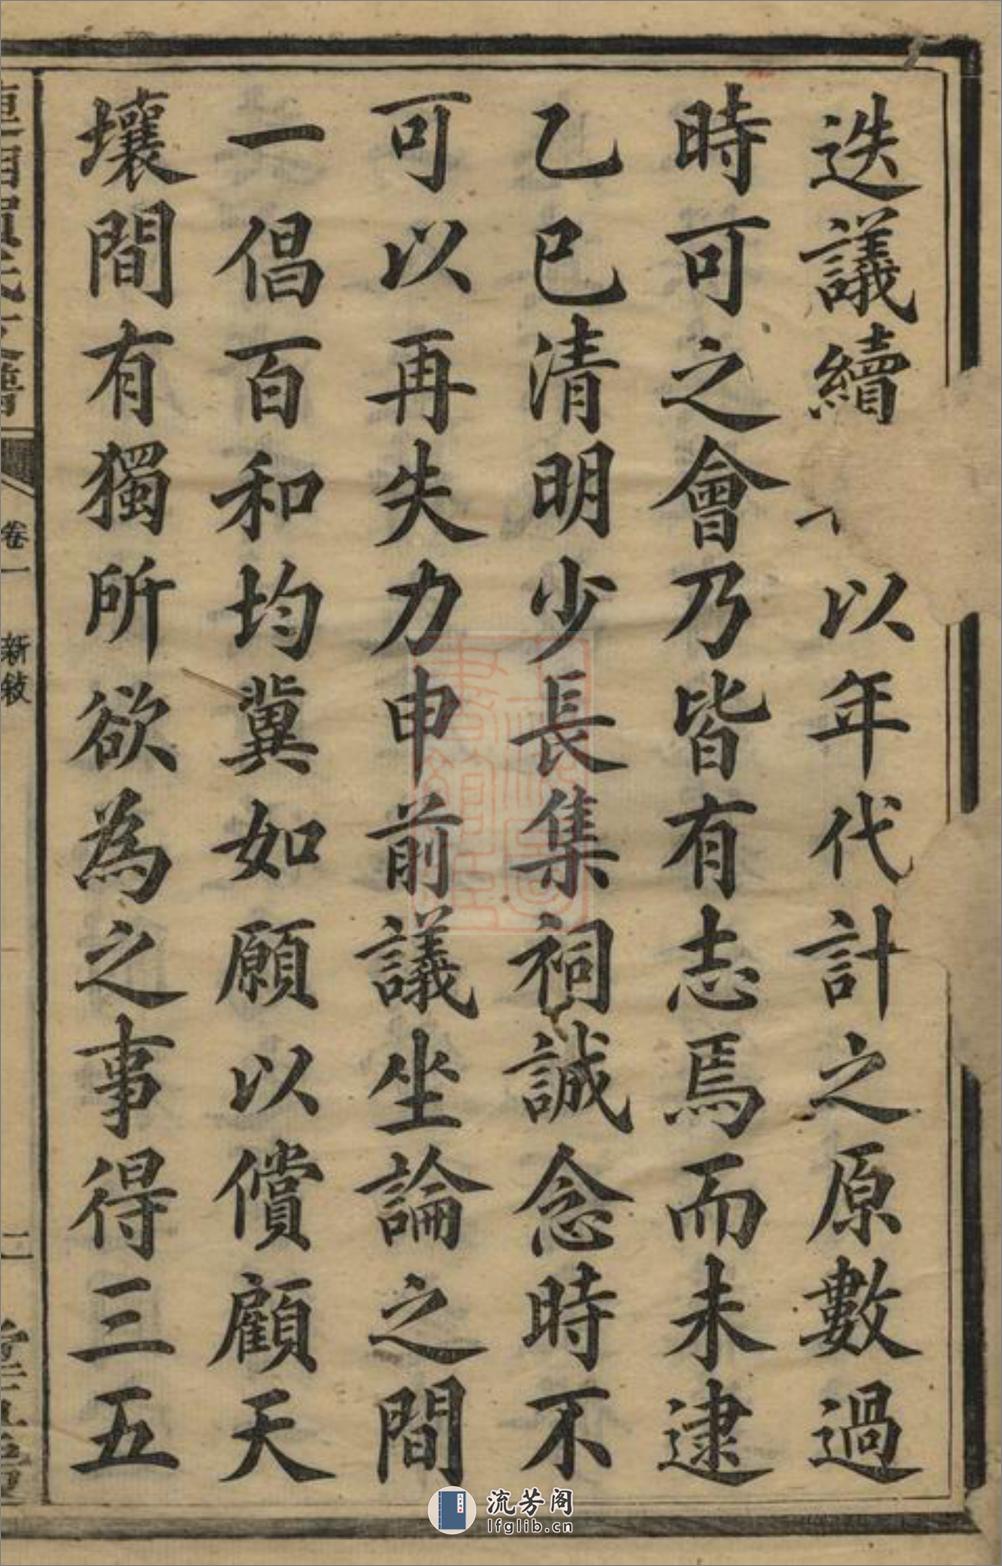 迭議續以年代計之原數過
時可之會乃皆有志焉而未逮
乙巳清明少長集祠誠念時不
可以再失力申前議坐論之間
一倡百和均冀如願以償顧天
壤間有獨所欲為之事得三五
卷一 新敍
二
流芳阁
lfglib.cn